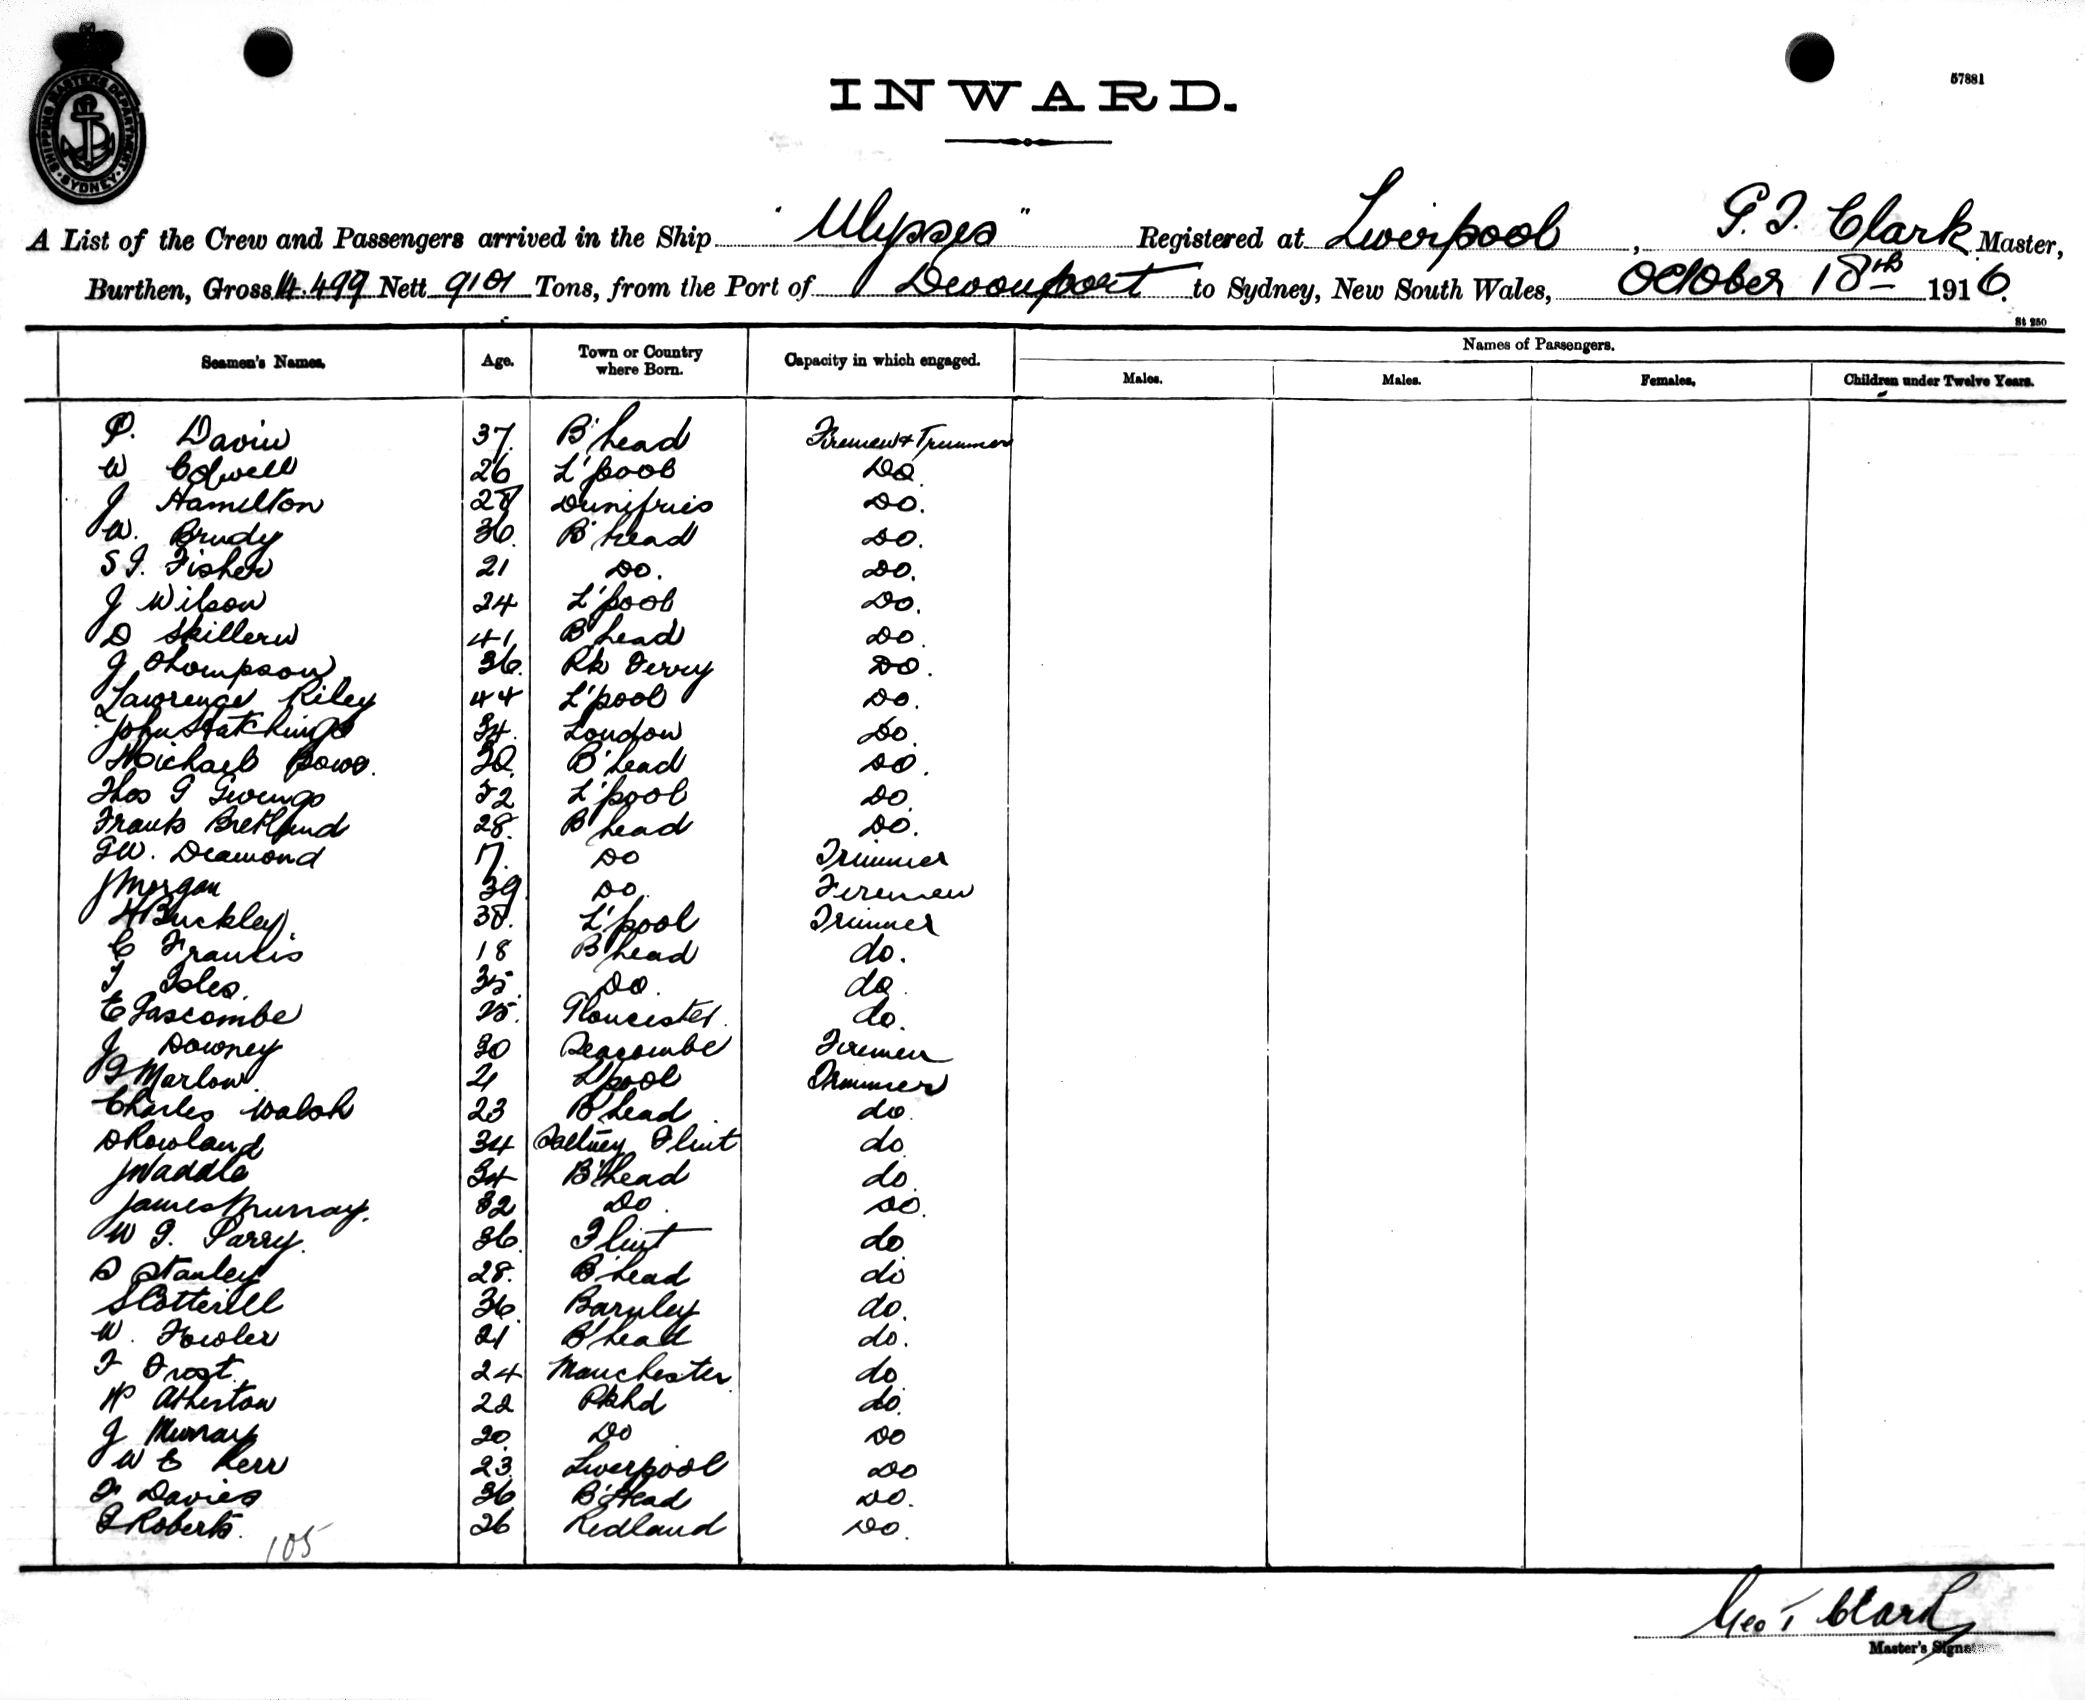 SHIPPING MASTERS DEPARTMENT SYDNEY
57881
INWARD.
A List of the Crew and Passengers arrived in the Ship "Ulysses" Registered at Liverpool, G. T. Clark Master,
Burthen, Gross 14.499 Nett 9101 Tons, from the Port of Devonport to Sydney, New South Wales, October 18th 1916.
St 250
Seamen's Names. Age. Town or Country where Born. Capacity in which engaged. Names of Passengers.
Males. Males. Females. Children under Twelve Years.
P. Davin 37. B'head Firemen & Trimmer
W 26 L'pool Do
J Hamilton 28 Dumfries Do.
W. Brudy 36. B'head Do.
S J. Fisher 21 Do. Do.
J Wilson 24 L'pool Do.
D Skillern 41 B'head Do.
J Thompson 36. Rk Ferry Do.
Lawrence Riley 44 L'pool Do.
John 34. London Do.
Michael B'head Do.
Thos G L'pool Do
Frank 28. B'head Do.
G W. Deamond 17. Do Trimmer
J Morgan 39 Do. Firemen
H Buckley. 38. L'pool Trimmer
C Francis 18 B'head do.
T Isles. 35. Do. do.
E Gascombe 25. Gloucester. do.
J Downey 30 Seacombe Firemen
G Marlow. 21 L'pool Trimmer
Charles Walsh 23 B'head do.
D Rowland 34 Saltney Flint do
J Waddle 34 B'head do.
James Murray. 32 Do. Do.
W J. Parry. 36. Flint do
S Stanley 28. B'head do
S Cotterill 36. Barnley do.
W. Fowler 21 B'head do.
F Frost. 24 Manchester do
W Atherton 22 Bkhd do.
J Murray 20. Do Do
W E Kerr 23. Liverpool Do
F Davies 36 B'Head Do.
G Roberts. 26 Redland Do.
105
Geo T Clark
Master's Signature